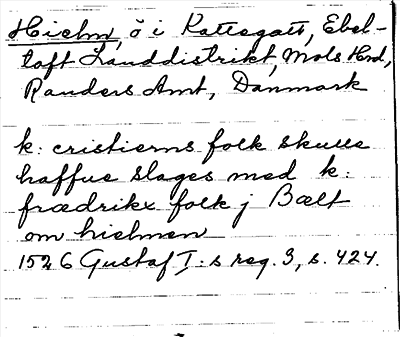 Hielm, ö i Kattegatt, Ebel-
toft Landdistrikt, Mols Hrd,
Randers Amt, Danmark
k: cristierns folk skulle
haffue slages med k:
frædrikx folk j Bælt
om hielmen
1526 Gustaf I:s reg. 3, s. 424.